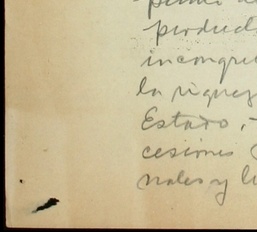 product
incongru
la riquez
Estado, -
cesiones
nales y l